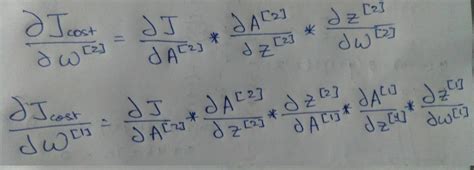 ∂J_cost/∂w^[2] = ∂J/∂A^[2] * ∂A^[2]/∂z^[2] * ∂z^[2]/∂w^[2]
∂J_cost/∂w^[1] = ∂J/∂A^[2] * ∂A^[2]/∂z^[2] * ∂z^[2]/∂A^[1] * ∂A^[1]/∂z^[1] * ∂z^[1]/∂w^[1]